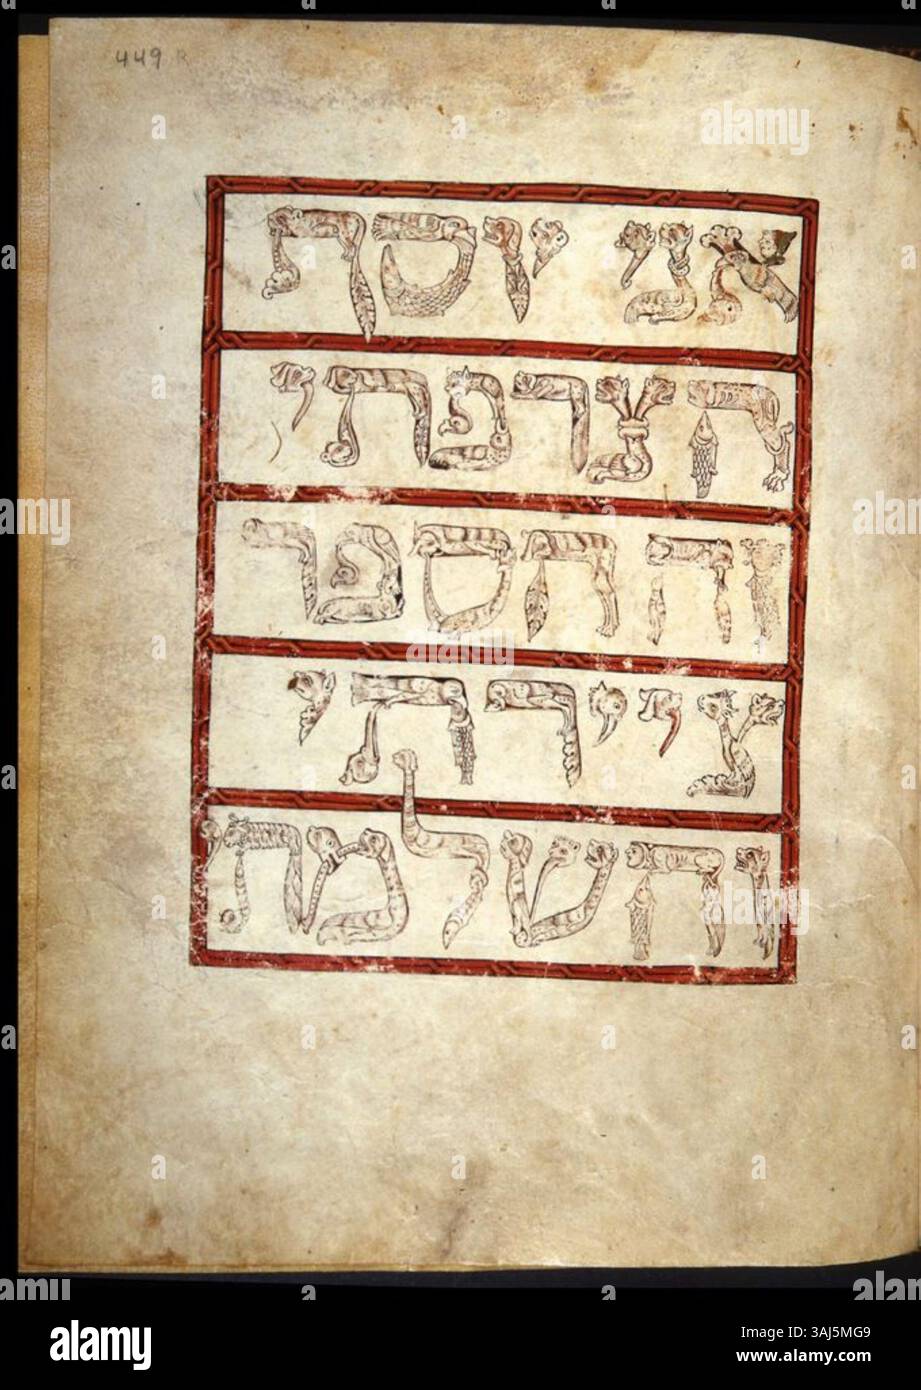 449 R
אני יוסף
הצרפתי
זה הספר
ציירתי
והשלמתי
alamy
Image ID: 3AJ5MG9
www.alamy.com